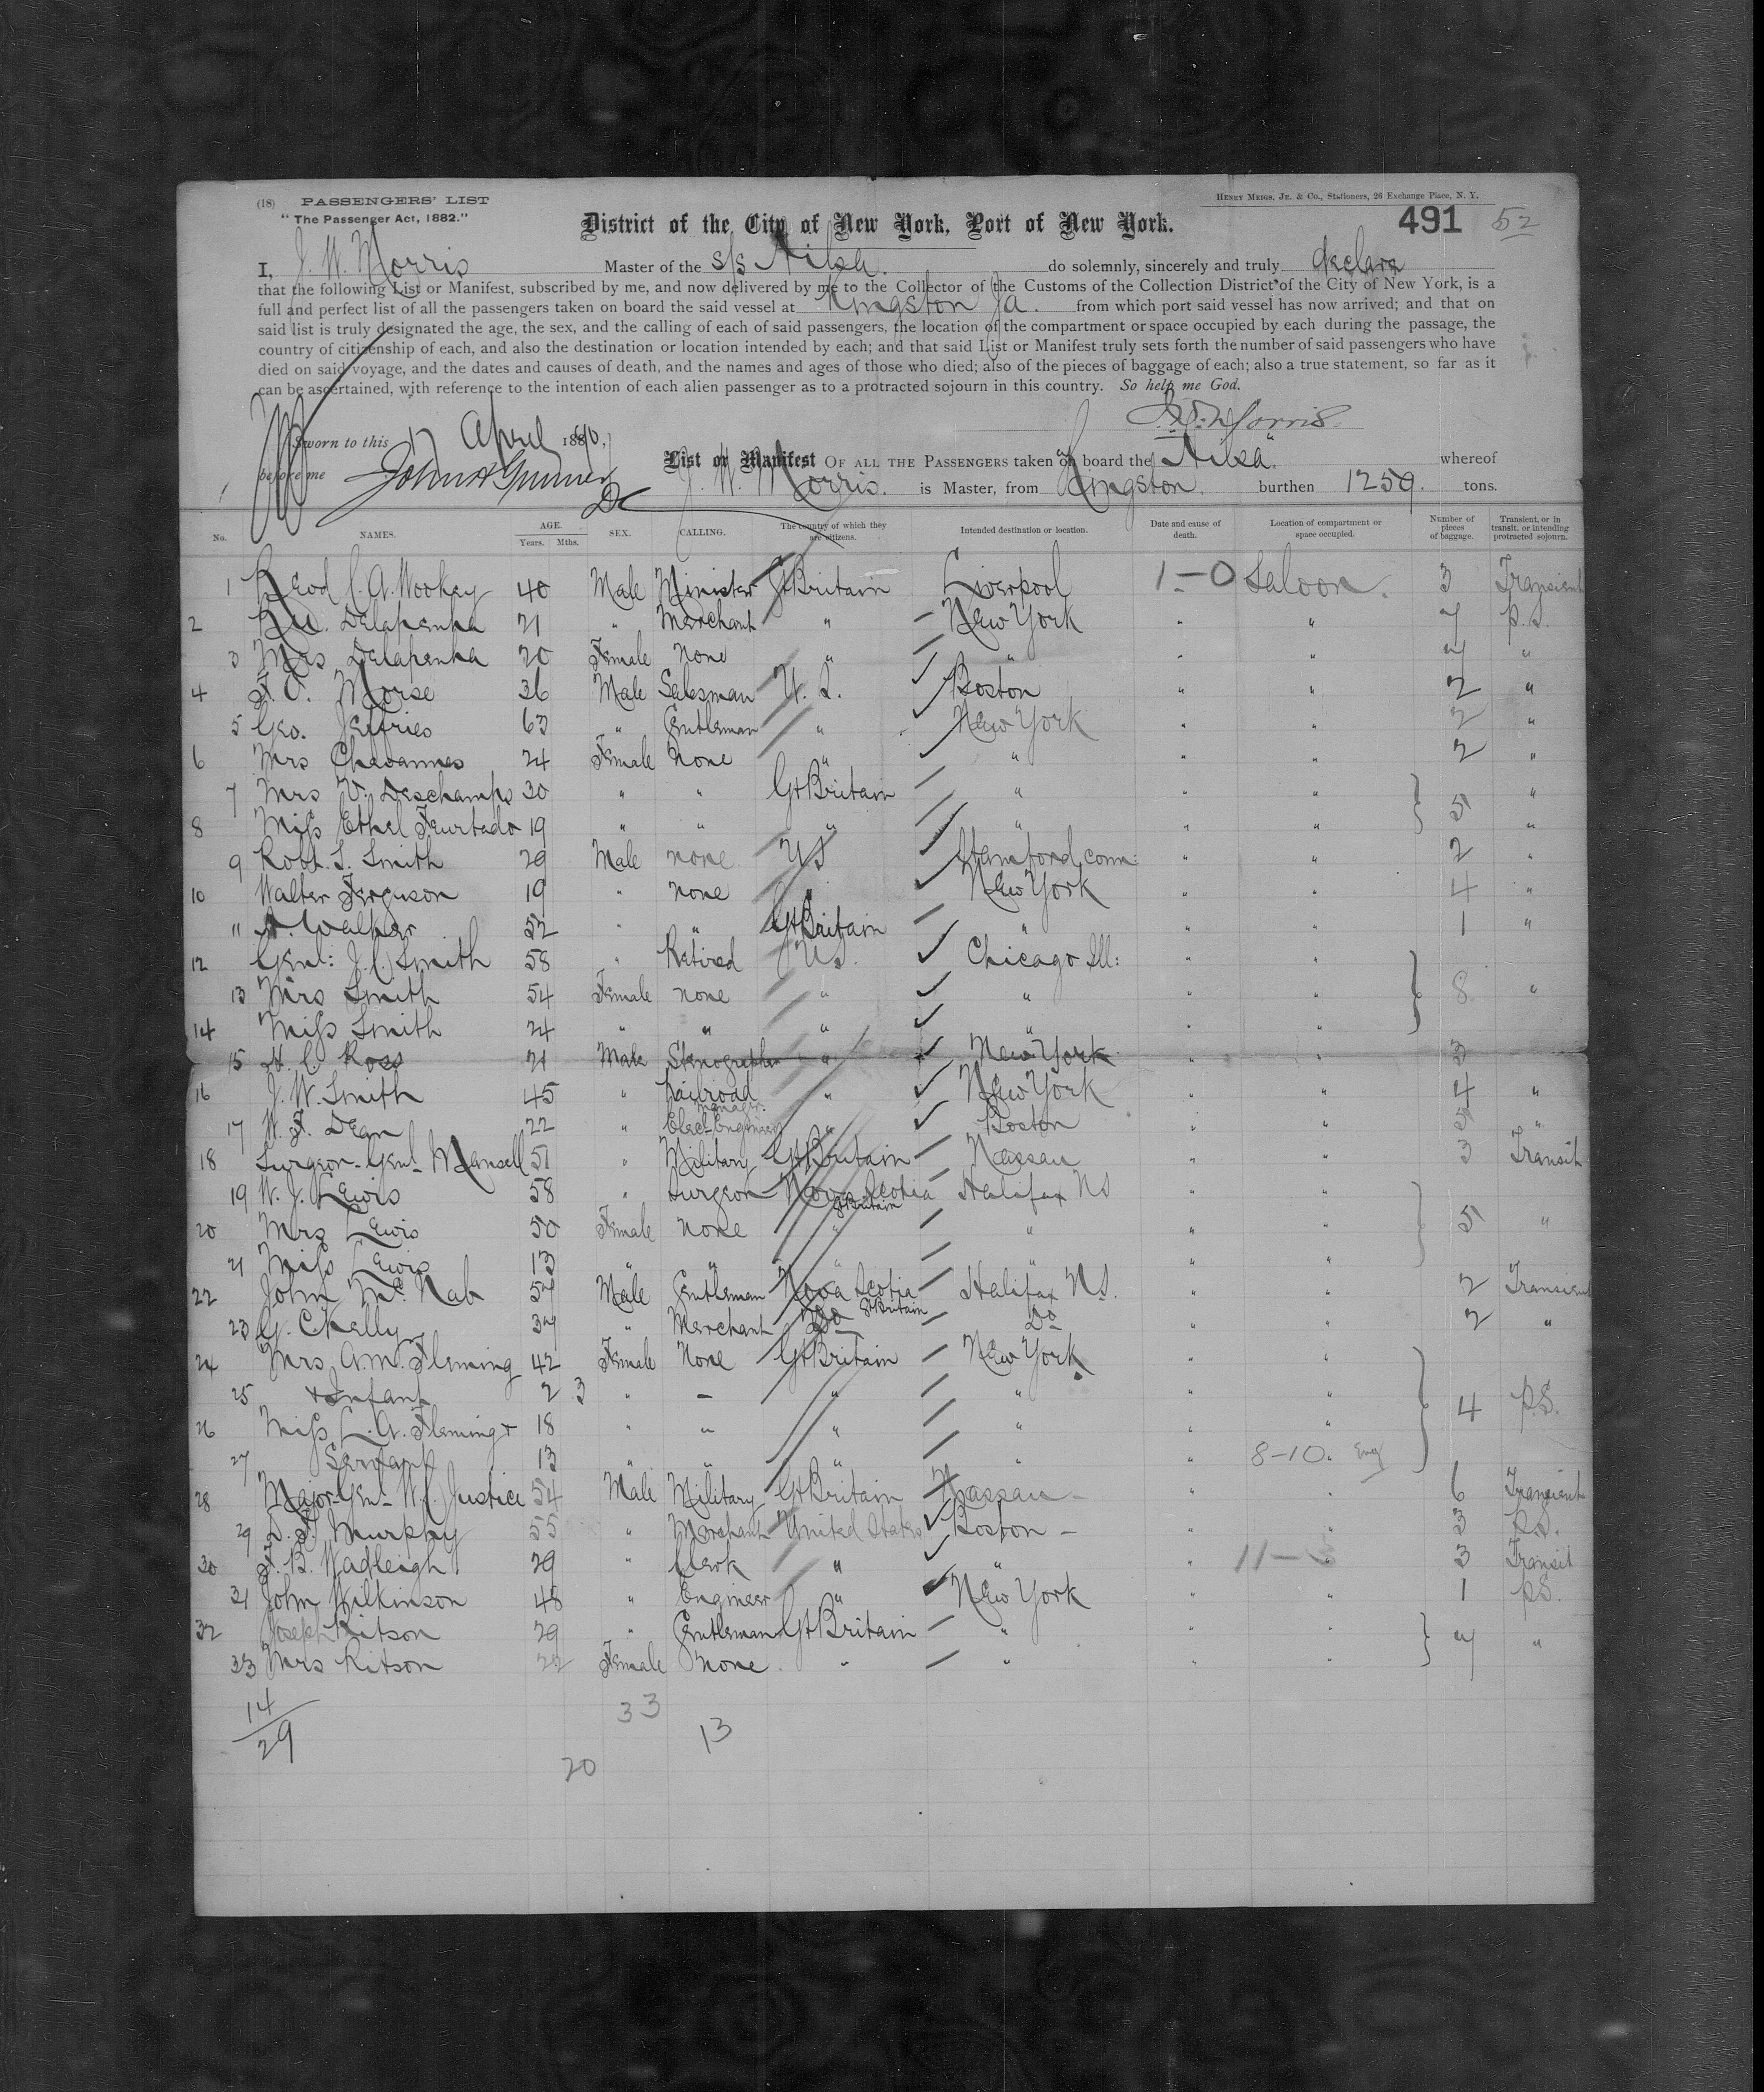 (18) PASSENGERS' LIST
"The Passenger Act, 1882."
HENRY MEIGS, JR. & CO., Stationers, 26 Exchange Place, N. Y.
491 52
District of the City of New York, Port of New York.
I, J. W. Morris Master of the S/S Ailsa. do solemnly, sincerely and truly declare
that the following List or Manifest, subscribed by me, and now delivered by me to the Collector of the Customs of the Collection District of the City of New York, is a
full and perfect list of all the passengers taken on board the said vessel at Kingston Ja. from which port said vessel has now arrived; and that on
said list is truly designated the age, the sex, and the calling of each of said passengers, the location of the compartment or space occupied by each during the passage, the
country of citizenship of each, and also the destination or location intended by each; and that said List or Manifest truly sets forth the number of said passengers who have
died on said voyage, and the dates and causes of death, and the names and ages of those who died; also of the pieces of baggage of each; also a true statement, so far as it
can be ascertained, with reference to the intention of each alien passenger as to a protracted sojourn in this country. So help me God.
J. W. Morris.
Sworn to this 17 April 1890,
before me
List or Manifest OF ALL THE PASSENGERS taken on board the "Ailsa" whereof
J. W. Morris. is Master, from Kingston. burthen 1259. tons.
No. NAMES. AGE. Years. Mths. SEX. CALLING. The country of which they are citizens. Intended destination or location. Date and cause of death. Location of compartment or space occupied. Number of pieces of baggage. Transient, or in transit, or intending protracted sojourn.
1 Revd C. A. Wookey 40 Male Minister Gt Britain Liverpool 1-0 Saloon. 3 Transient
2 Delapenha 21 " Merchant " New York " " 7 P.S.
3 Mrs Delapenha 20 Female none " " " " 7 "
4 Morse 36 Male Salesman U. S. Boston " " 2 "
5 Geo. Jeffries 63 " Gentleman " New York " " 2 "
6 Mrs Chavannes 24 Female None " " " " 2 "
7 Mrs V. Deschamps 30 " " Gt Britain " " " 5 "
8 Miss Ethel Feurtado 19 " " " " " " "
9 Robt. S. Smith 29 Male none US Stamford, conn: " " 2 "
10 Walter Ferguson 19 " none " New York " " 4 "
11 A. Walker 52 " " Gt Britain " " " 1 "
12 Genl: J. C. Smith 58 " Retired US. Chicago Ill: " "
13 Mrs Smith 54 Female none " " " " 8 "
14 Miss Smith 24 " " " " " "
15 H. C. Ross 21 Male Stenographer " New York " " 3
16 J. W. Smith 45 " Railroad manager. " New York " " 4 "
17 W. F. Dean 22 " Elect-Engineer " Boston " " 5 "
18 Surgeon-Genl- Mansell 51 " Military Gt Britain Nassau " " 3 Transit
19 W. J. Lewis 58 " Surgeon Nova Scotia Gt Britain Halifax NS " "
20 Mrs Lewis 50 Female none " " " " 5 "
21 Miss Lewis 13 " " " " " "
22 John McNab 57 Male Gentleman Nova Scotia Halifax N.S. " " 2 Transient
23 G. C Kelly 37 " Merchant Do Gt Britain Do " " 2 "
24 Mrs A. M. Fleming 42 Female None Gt Britain New York " "
25 + Infant 2 3 " - " " " " 4 P.S.
26 Miss L. A. Fleming + 18 " " " " " "
27 Servant 13 " " " " " 8-10. Eng
28 Major-Genl- W. C. Justice 54 Male Military Gt Britain Nassau - " 6 Transient
29 D. F. Murphy 55 " Merchant United States Boston - " " 3 P.S.
30 F. B. Wadleigh 29 " Clerk " " " 11- 3 Transit
31 John Wilkinson 48 " Engineer " New York " " 1 P.S.
32 Joseph Ritson 29 " Gentleman Gt Britain " " " 7 "
33 Mrs Ritson 22 Female none. " " " "
14
29
33
13
20